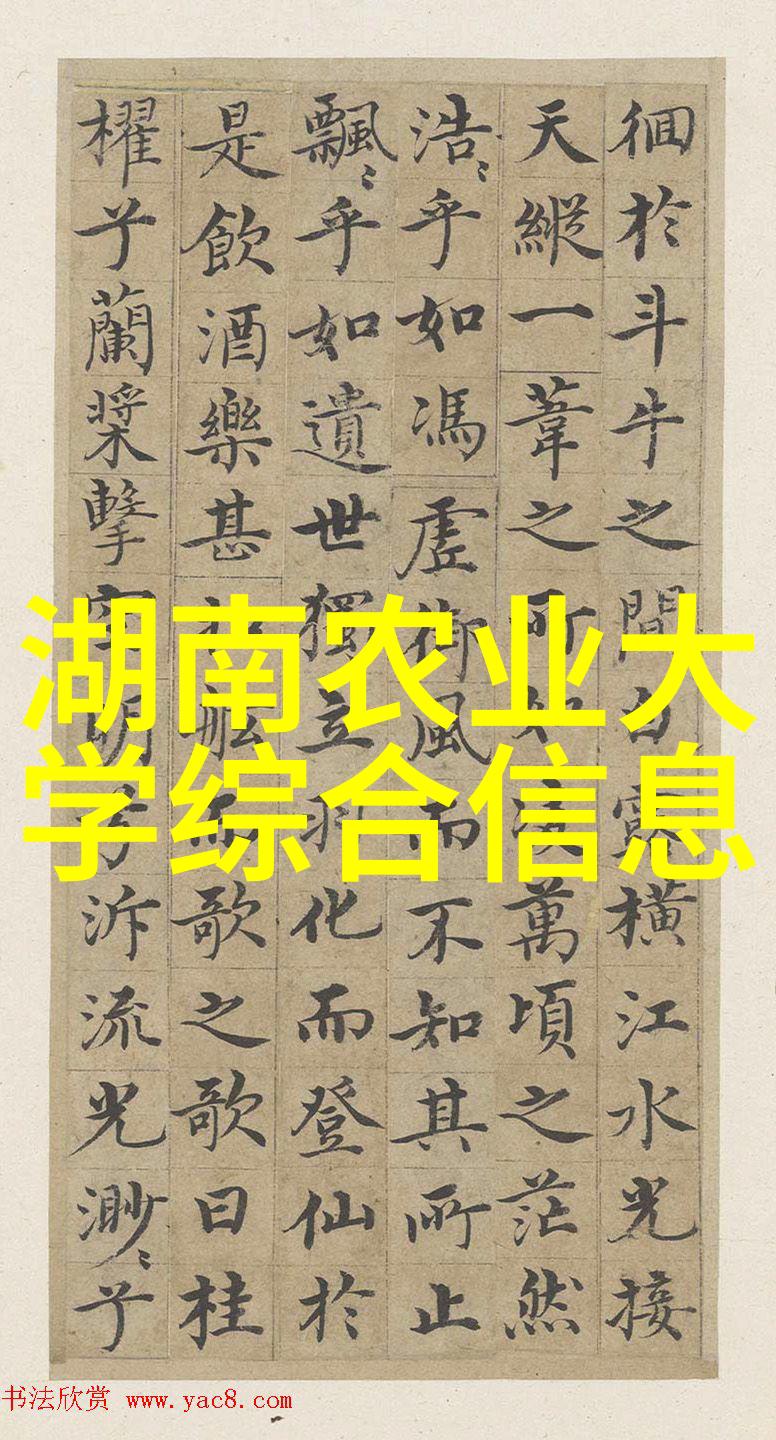 徊於斗牛之間白露橫江水光接
天縱一葦之所如凌萬頃之茫然
浩〻乎如馮虛御風而不知其所止
飄〻乎如遺世獨立羽化而登仙於
是飲酒樂甚扣舷而歌之歌曰桂
櫂兮蘭槳擊空明兮泝流光渺〻兮
湖南农业大
学综合信息
书法欣赏 www.yac8.com